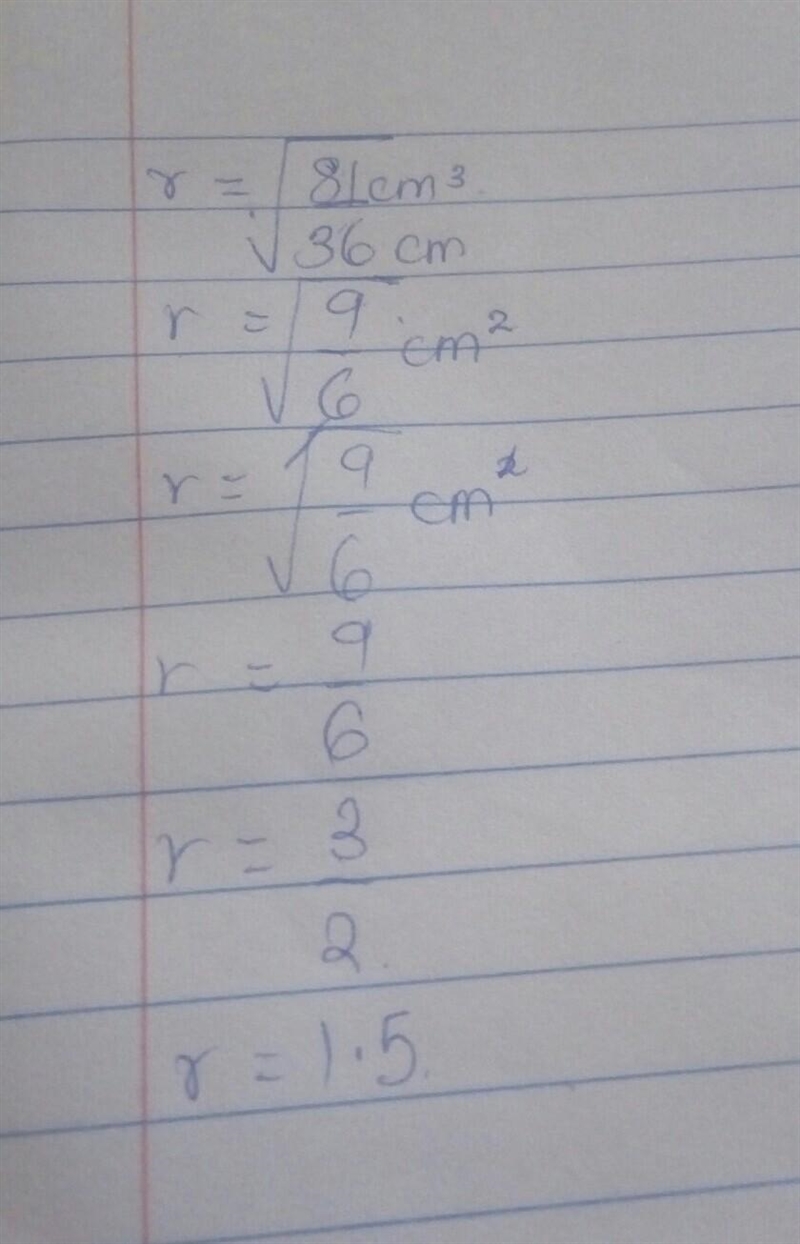 r = √81cm³/36 cm
r = √9/6 cm²
r = √9/6 cm²
r = 9/6
r = 3/2.
r = 1.5.